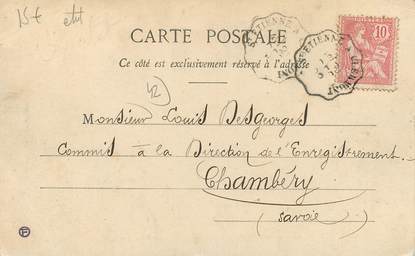 15€ etit
CARTE POSTALE
Ce côté est exclusivement réservé à l'adresse
10
42
Monsieur Louis Desgeorges
Commis à la Direction de l'Enregistrement
Chambéry
(Savoie)
F